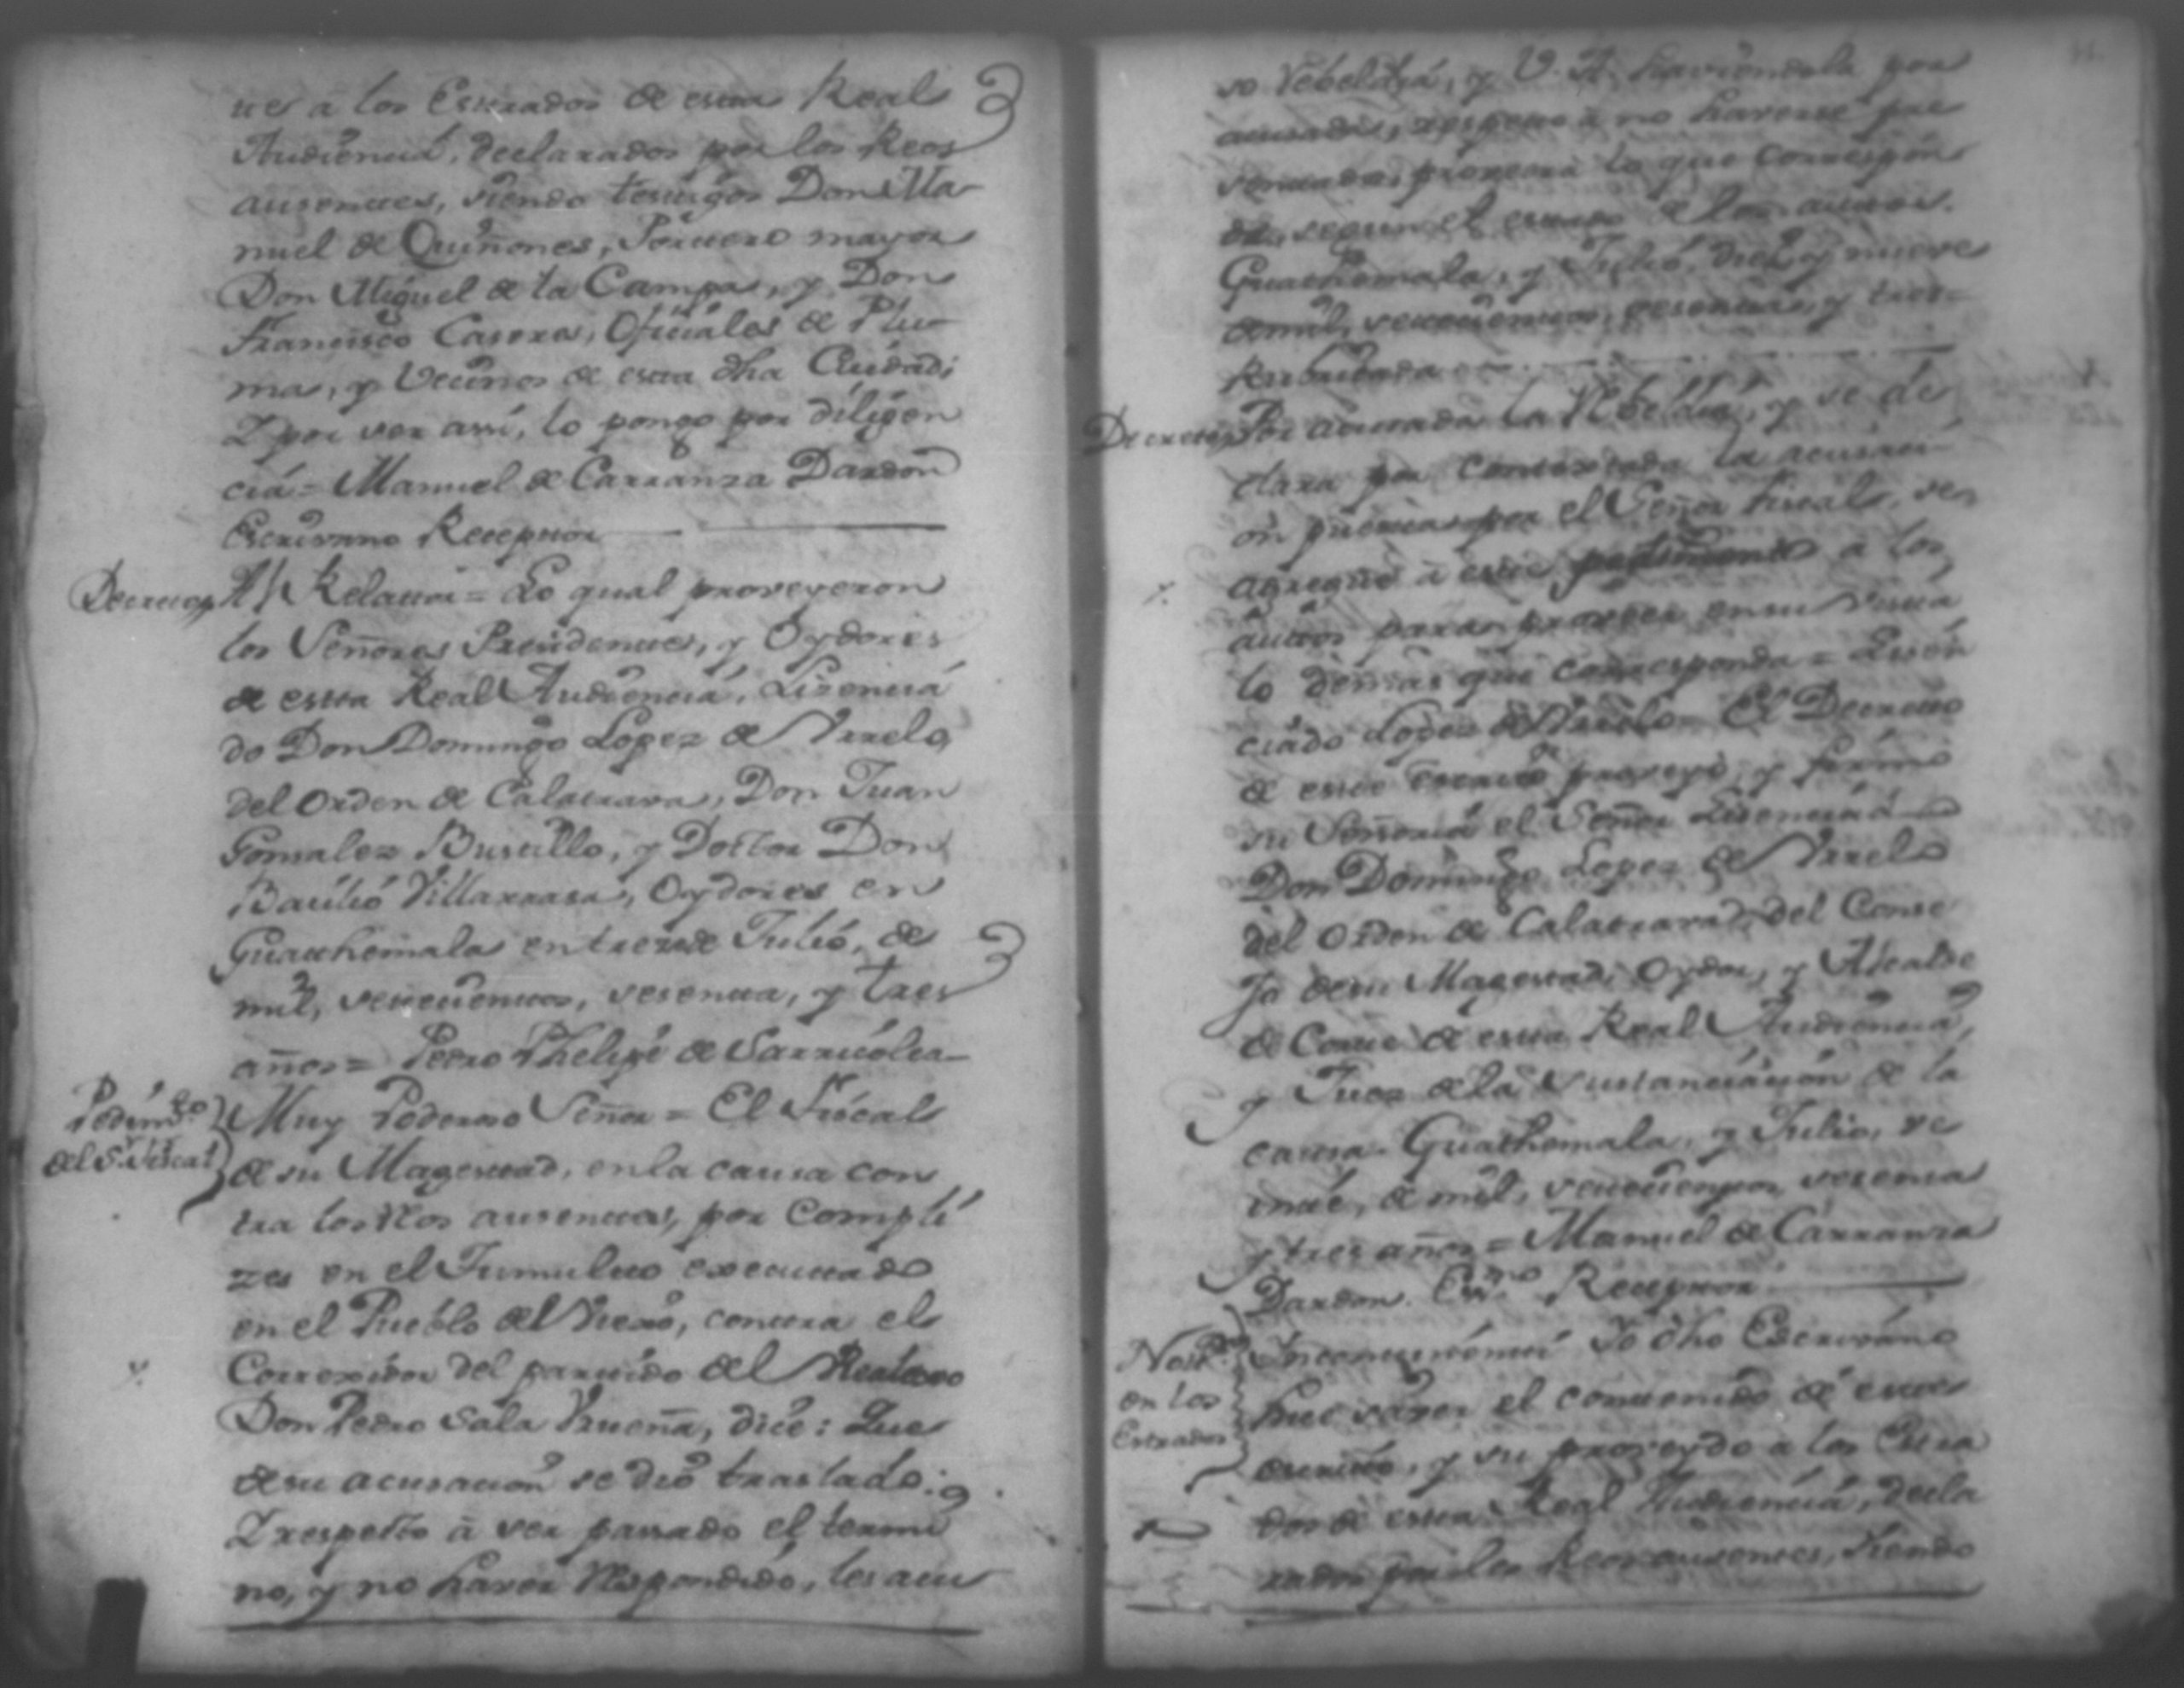 ue a los Estrados de esta Real
Audiencia, declarados por los Reos
ausentes, siendo testigos Don Ma-
nuel de Quiñones, Portero mayor
Don Miguel de la Campa, y Don
Francisco Casere, Oficiales de Plu-
ma, y Vecinos de esta dha Ciudad;
Y por ser assi, lo pongo por diligen
cia = Manuel de Carranza Dardon
Escrivano Receptor
Decreto A/ Relator = Lo qual proveyeron
los Señores Presidente, y Oydores
de esta Real Audiencia, Lizencia
do Don Domingo Lopez de Vrrelo,
del Orden de Calatrava, Don Juan
Gonsalez Bustillo, y Doctor Don
Basilio Villarrasa, Oydores en
Guathemala en trese de Julio, de
mil, setecientos, sesenta, y tres
años = Pedro Phelipe de Sarricolea
Pedim.to del S.r Fiscal
Muy Poderoso Señor = El Fiscal
de su Magestad, en la causa con
tra los rros ausentes, por Compli
zes en el Tumulto executado
en el Pueblo del
contra el
Corregidor del partido del Realexo
Don Pedro Sala Vrueña, dice: Que
de su acusacion se dió traslado:
Y respecto à ser passado el termi
no, y no haver respondido, les acu
so rebeldia, y V. A. haviendola por
acusada, respecto à no haverse pre
sentado, proveera lo que correspon
da, segun el estado de los autos.
Guathemala, y Julio, diez y nueve
de mil, setecientos, sesenta, y tres =
Rubricada
Decreto Por acusada la rebeldia, y se de
clara por contextada la acusaci
on puesta por el Señor Fiscal, se
agregue a este pedimento a los
autos para proveer en su vista
lo demas que corresponda = Lisen
ciado Lopez de Vrrelo = El Decreto
de este Escrito proveyó, y firmó
su Señoria el Señor Lisenciado
Don Domingo Lopez de Vrrelo
del Orden de Calatrava, del Conse
Jo de su Magestad, Oydor, y Alcalde
de Corte de esta Real Audiencia,
y Juez de la sustanciación de la
causa. Guathemala, y Julio, ve
inte, de mil, setecientos, sesenta
y tres años = Manuel de Carranza
Dardon. Esn.º Receptor
Not.on en los Estrados
Incontinenti Yo dho Escrivano
hice saver el contenido de este
escrito, y su proveydo a los Estra
dos de esta Real Audiencia, decla
rados por los Reos ausentes, siendo